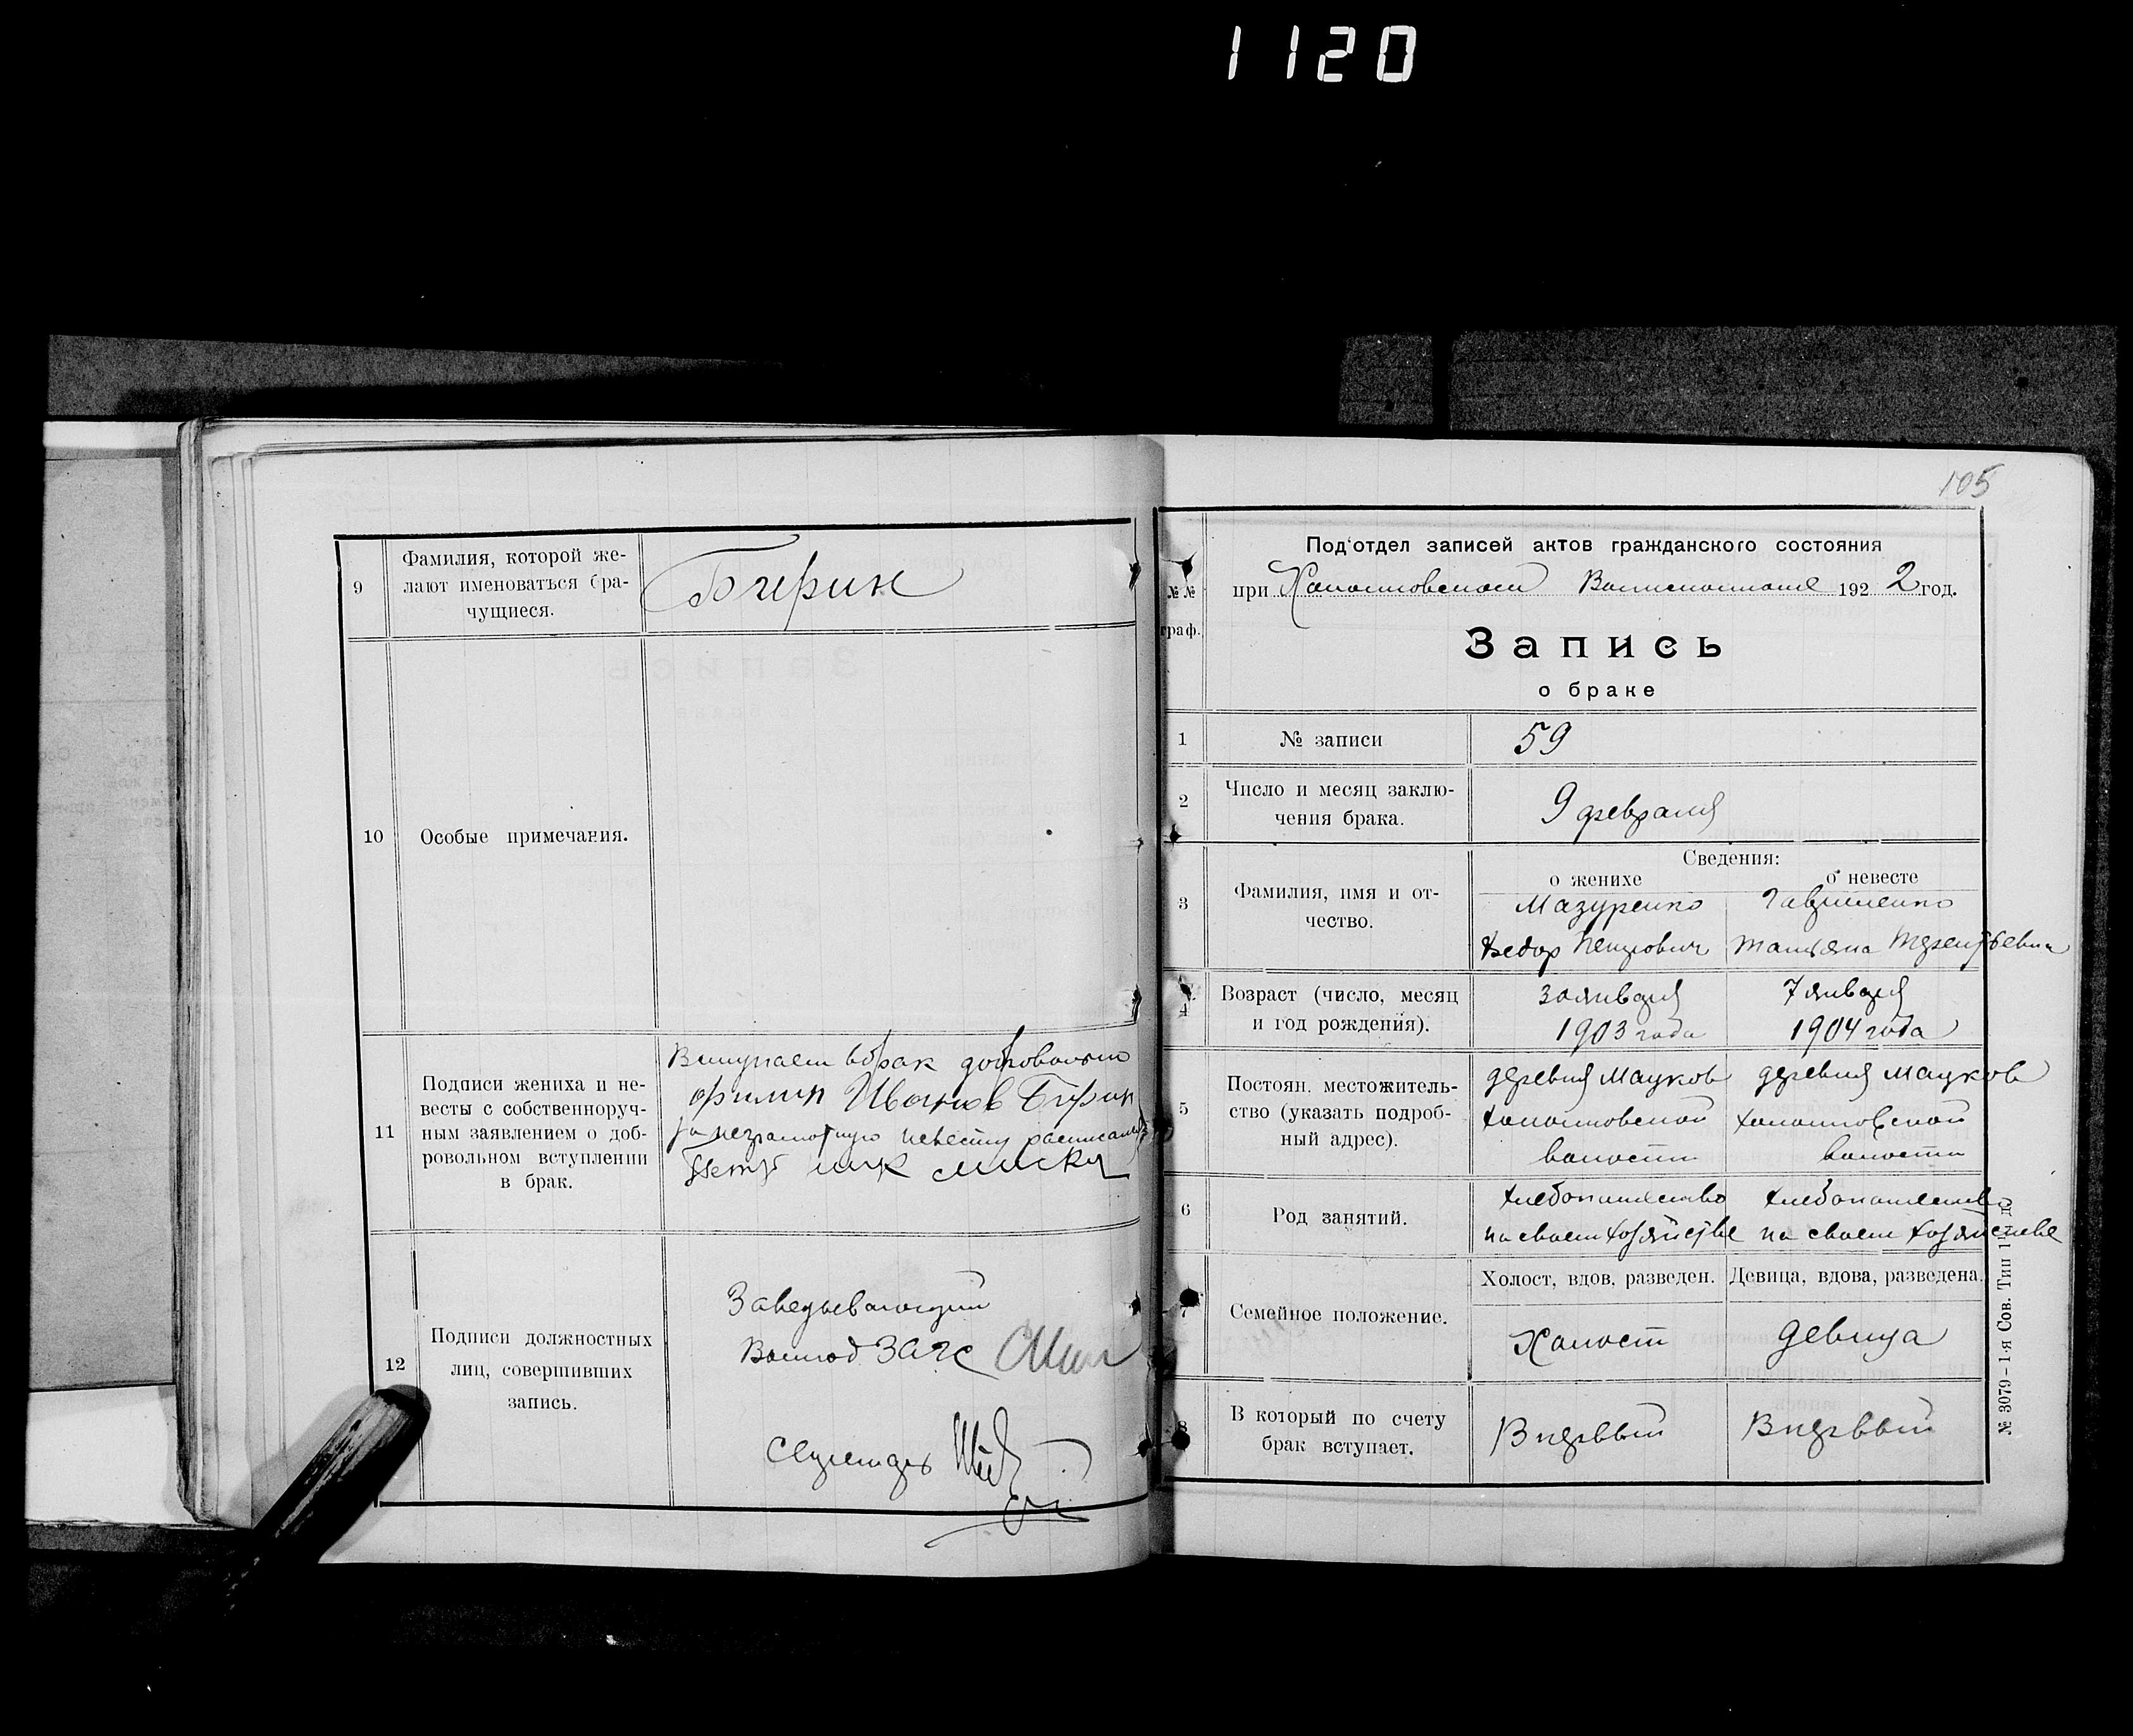 1120
9
Фамилия, которой же-
лают именоваться бра-
чущиеся.
Бчерик
10
Особые примечания.
11
Подписи жениха и не-
весты с собственноруч-
ным заявлением о доб-
ровольном вступлении
в брак.
Вступаем в брак добровольно
Филип Иванов
за неграмотную невесту
12
Подписи должностных
лиц, совершивших
запись.
Заведывающий
ЗАГС
105
№№
граф.
Под'отдел записей актов гражданского состояния
при 192 2 год.
Запись
о браке
1
№ записи
59
2
Число и месяц заклю-
чения брака.
9 февраля
3
Фамилия, имя и от-
чество.
Сведения:
о женихе
о невесте
Мазуренко
Федор Петрович
Гавриленко
Татьяна
4
Возраст (число, месяц
и год рождения).
30 января
1903 года
7 января
1904 года
5
Постоян. местожитель-
ство (указать подроб-
ный адрес).
деревня Мауков
волости
деревня Мауков
волости
6
Род занятий.
хлебопашество
на своем хозяйстве
хлебопашество
на своем хозяйстве
7
Семейное положение.
Холост, вдов, разведен.
Девица, вдова, разведена.
Холост
девица
8
В который по счету
брак вступает.
В первый
В первый
№ 3079-1-я Сов. Тип